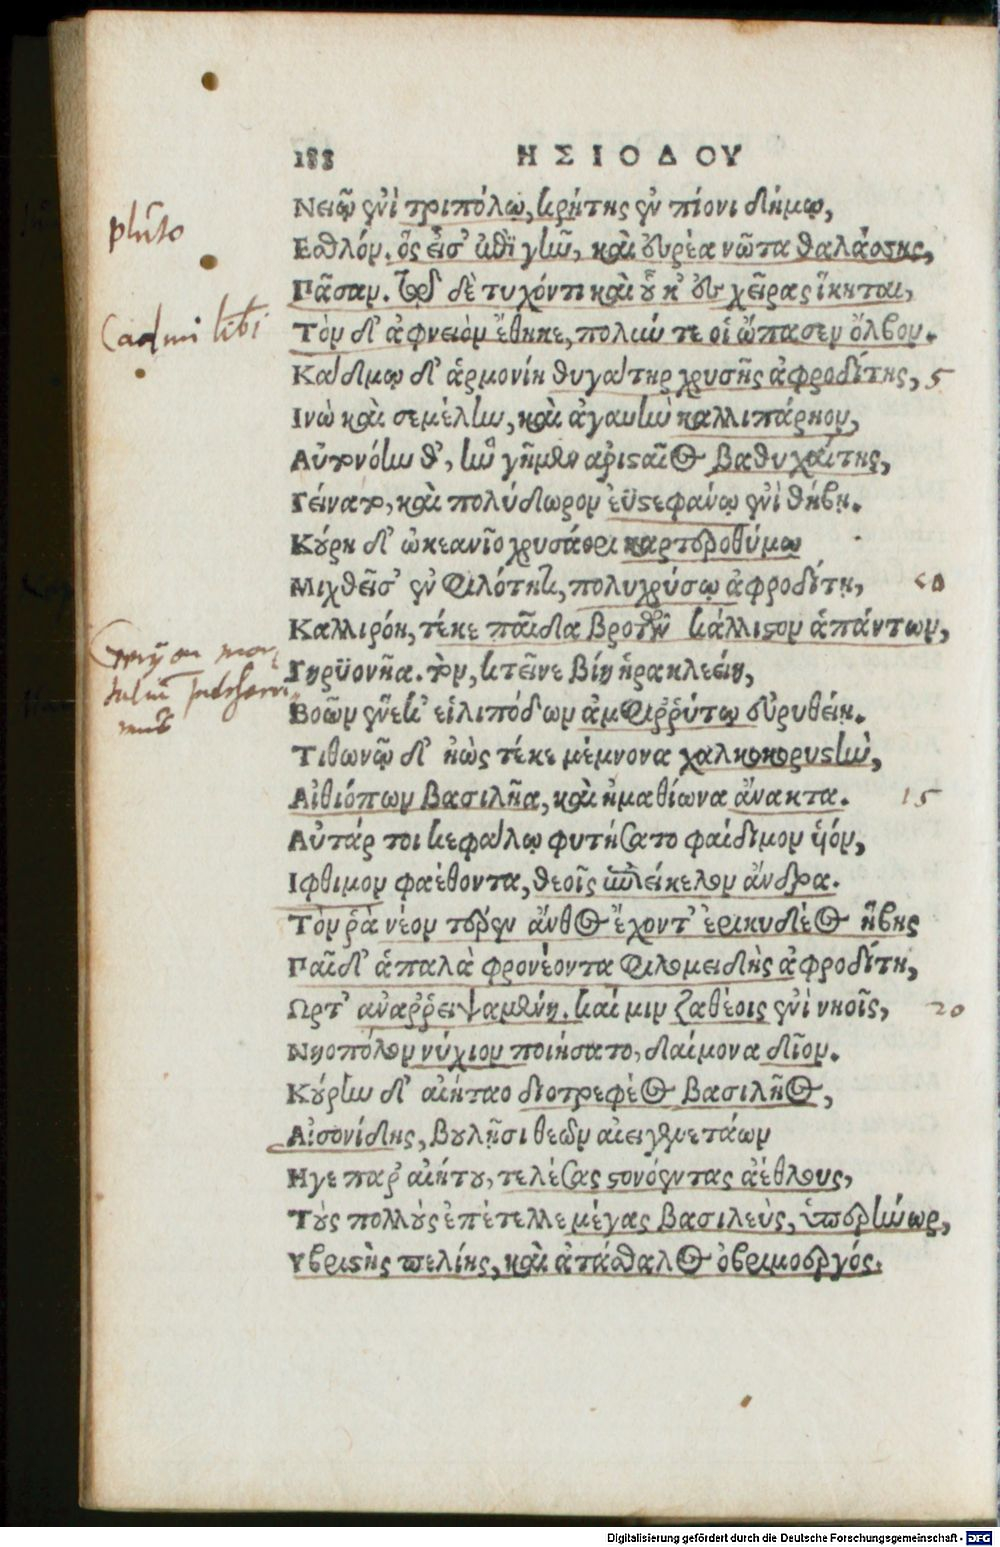 188 ΗΣΙΟΔΟΥ
Νειῷ ἐνὶ τριπόλῳ, κρήτης ἐν πίονι δήμῳ,
Εσθλόν. ὃς εἶσ' ἐπὶ γῆν, καὶ οὐρέα νῶτα θαλάσσης,
Πᾶσαν. τῷ δὲ τυχόντι καὶ οὗ κ' ἐς χεῖρας ἵκηται,
Τὸν δ' ἀφνειὸν ἔθηκε, πολὺν τε οἱ ὤπασεν ὄλβον.
Κάδμῳ δ' ἁρμονίη θυγάτηρ χρυσῆς ἀφροδίτης, 5
Ινὼ καὶ σεμέλην, καὶ ἀγαυὴν καλλιπάρῃον,
Αὐτονόην θ', ἣν γῆμεν ἀρισταῖος βαθυχαίτης,
Γείνατο, καὶ πολύδωρον ἐϋστεφάνῳ ἐνὶ θήβῃ.
Κούρη δ' ὠκεανοῖο χρυσάορι καρτεροθύμῳ
Μιχθεῖσ' ἐν φιλότητι, πολυχρύσῳ ἀφροδίτη, 10
Καλλιρόη, τέκε παῖδα βροτῶν κάλλιστον ἁπάντων,
Γηρϋονῆα. τὸν, κτεῖνε βίη ἡρακλείη,
Βοῶν ἕνεκ' εἰλιπόδων ἀμφιῤῥύτῳ εὐρυθείῃ.
Τιθωνῷ δ' ἠὼς τέκε μέμνονα χαλκοκορυστὴν,
Αἰθιόπων βασιλῆα, καὶ ἠμαθίωνα ἄνακτα. 15
Αὐτάρ τοι κεφάλῳ φυτήσατο φαίδιμον υἱόν,
Ιφθιμον φαέθοντα, θεοῖς ἐπιείκελον ἄνδρα.
Τόν ῥὰ νέον τέρεν ἄνθος ἔχοντ' ἐρικυδέος ἥβης
Παῖδ' ἁπαλὰ φρονέοντα φιλομειδὴς ἀφροδίτη,
Ωρτ' ἀναῤῥειψαμένη. καί μιν ζαθέοις ἐνὶ νηοῖς, 20
Νηοπόλον νύχιον ποιήσατο, δαίμονα δῖον.
Κούρην δ' αἰήταο διοτρεφέος βασιλῆος,
Αἰσονίδης, βουλῇσι θεῶν αἰειγενετάων
Ηγε παρ' αἰήτου, τελέσας στονόεντας ἀέθλους,
Τοὺς πολλοὺς ἐπέτελλε μέγας βασιλεὺς, ὑπερήνωρ,
Υβριστὴς πελίης, καὶ ἀτάσθαλος ὀβριμοεργός.
pluto
Cadmi libi
Digitalisierung gefördert durch die Deutsche Forschungsgemeinschaft - DFG